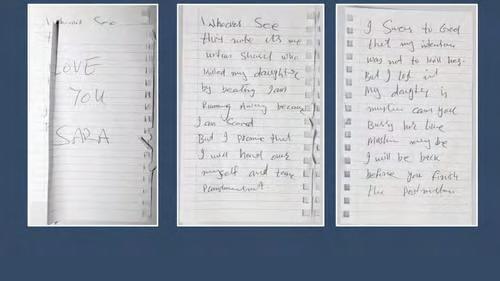 Whoever See
LOVE
YOU
SARA
Whoever See
this note its me
urfan Sharif who
killed my daughter
by beating I am
Running Away because
I am Scared
But I promise that
I will hand over
myself and take
Punishment
I Swear to God
that my intention
was not to kill her.
But I lost it
My daughter is
muslim can you
Bury her like
Muslim may be
I will be back
before you finish
the Postmortem